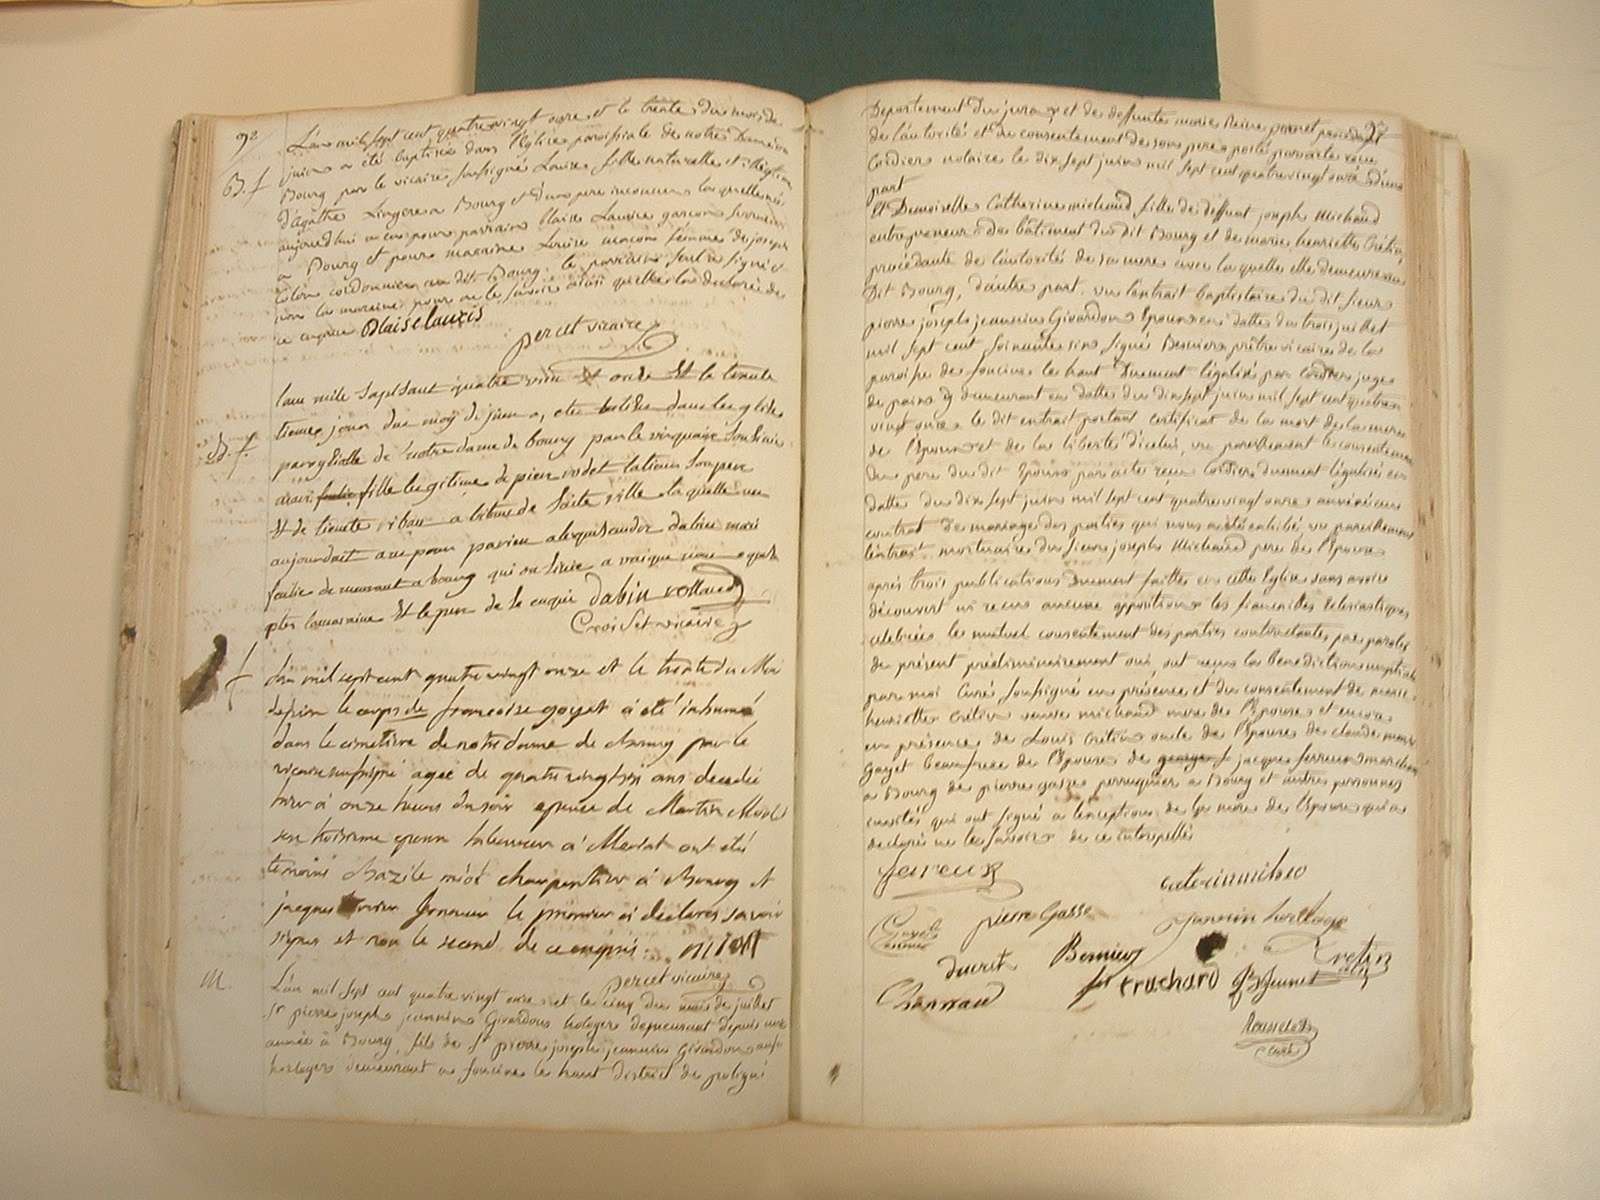 92
B. f
L'an mil sept cent quatre vingt onze et le trente du mois de
juin a été baptisée dans l'Eglise paroissiale de notre Dame de
Bourg par le vicaire soussigné Louise fille naturelle et illégitime
d'agathe Lingere a Bourg et d'un pere inconnu laquelle née
aujourd'hui a eu pour parrain Blaise garcon
a Bourg et pour maraine Louise macon femme de joseph
Colon cordonnier au dit Bourg. le parrain seul a signé et
non la maraine pour ne le savoir ainsi qu'elle l'a declaré de
ce enquise Blaise laucis
percet vicaire
B. f.
lan mile sapt sant quatre vin et onze Et le tente
tieme jour du moy de juin a, ete batisée dans leglise
de notre dame de bourg par le
fille legitime de pier rodet
Et de
aujourdait a eu pour parien alexquisandre dabin
de meurant a bourg qui on sinie a
la maraine Et le per de se enquis dabin vollaud
Croiset vicaire
L'an mil sept cent quatre vingt onze et le trente du Moi
de juin le corps de francoise goyet a été inhumé
dans le cimetiere de notre dame de Bourg par le
vicaire soussigné agée de quatre vingt six ans decedée
hier à onze heures du soir epouse de Martin
a Meriat ont été
temoins Bazile miot charpentier à Bourg et
jacques le premier a declaré savoir
signer et non le second de ce enquis. miot
percet vicaire
M.
L'an mil sept cent quatre vingt onze et le cinq du mois de juillet
Sr pierre joseph jeannin Girardon horloger demeurant depuis une
année à Bourg, fils de Sr pierre joseph jeannin Girardon aussi
horloger demeurant a foncine le haut district de poligni
Departement du jura et de deffunte marie Reine procedant
de l'autorité et du consentement de son pere porté par acte recu
Cordier notaire le dix sept juin mil sept cent quatre vingt onze d'une
part
Et Demoiselle Catherine michaud fille de deffunt joseph Michaud
entrepreneur de bâtiment du dit Bourg et de marie henriette Crétin,
procédante de l'autorité de sa mere avec laquelle elle demeure au
Dit Bourg, d'autre part. vu l'extrait baptistaire du dit sieur
pierre joseph jeannin Girardon Epoux en datte du trois juillet
mil sept cent soixante six signé Besnier prêtre vicaire de la
paroisse de foncine le haut Duement légalisé par Cordier juge
de paix y demeurant en datte du dix sept juin mil sept cent quatre
vingt onze le dit extrait portant certificat de la mort de la mere
de l'Epoux et de la liberté d'icelui, vu pareillement le consentement
du pere du dit Epoux par acte reçu Cordier duement légalisé en
datte du dix sept juin mil sept cent quatre vingt onze annexé au
contrat de mariage des parties qui nous a été exhibé, vu pareillement
l'extrait mortuaire du sieur joseph Michaud pere de l'Epouse
après trois publications Duement faittes en cette Eglise sans avoir
découvert ni recu aucune opposition, les fiancailles Eclesiastiques
celebrées le mutuel consentement des parties contractantes par paroles
de présent préliminairement oui, ont reçu la bénédiction nuptiale
par moi Curé soussigné en présence et du consentement de marie
henriette Crétin veuve michaud mere de l'Epouse, et encore
en présence de Louis Crétin oncle de l'Epouse de claude marie
Goyet beaufrere de l'Epouse de jacques ferreux marchand
a Bourg de pierre gasse perruquier a Bourg et autres personnes
invités qui ont signé a l'exception de la mere de l'Epouse qui a
declaré ne le savoir de ce interpellée
ferreux
caterinmicho
Goyet
pierre Gasse
jannin
Cretin
ducret
Bernier
truchard
Channau
Rousselet
Curé